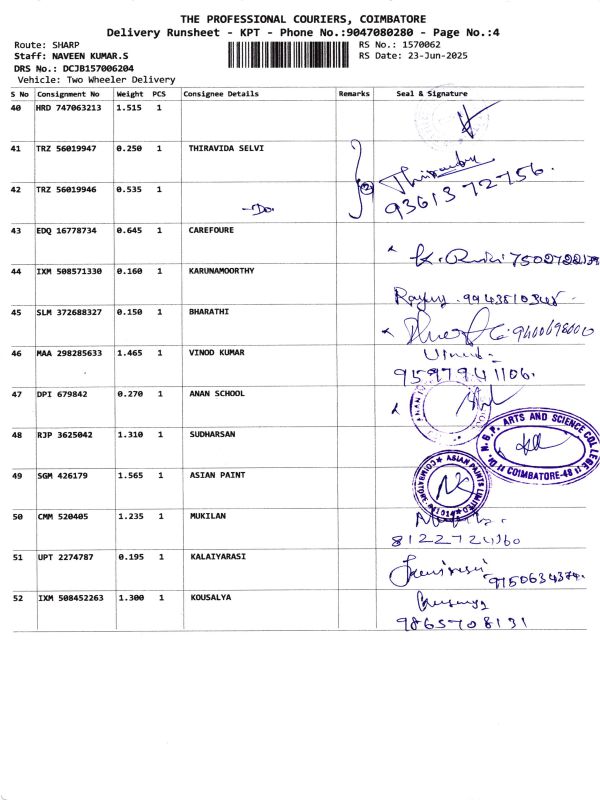 THE PROFESSIONAL COURIERS, COIMBATORE
Delivery Runsheet - KPT - Phone No.:9047080280 - Page No.:4
Route: SHARP RS No.: 1570062
Staff: NAVEEN KUMAR.S RS Date: 23-Jun-2025
DRS No.: DCJB157006204
Vehicle: Two Wheeler Delivery
S No Consignment No Weight PCS Consignee Details Remarks Seal & Signature
40 HRD 747063213 1.515 1
41 TRZ 56019947 0.250 1 THIRAVIDA SELVI
42 TRZ 56019946 0.535 1 -Do. 2 9361372756.
43 EDQ 16778734 0.645 1 CAREFOURE
44 IXM 508571330 0.160 1 KARUNAMOORTHY
45 SLM 372688327 0.150 1 BHARATHI
46 MAA 298285633 1.465 1 VINOD KUMAR
9597941106.
47 DPI 679842 0.270 1 ANAN SCHOOL
48 RJP 3625042 1.310 1 SUDHARSAN ARTS AND SCIENCE COLLEGE COIMBATORE-48
49 SGM 426179 1.565 1 ASIAN PAINT ASIAN PAINTS LIMITED COIMBATORE
50 CMM 520405 1.235 1 MUKILAN
51 UPT 2274787 0.195 1 KALAIYARASI 9150634374.
52 IXM 508452263 1.300 1 KOUSALYA
9865708131